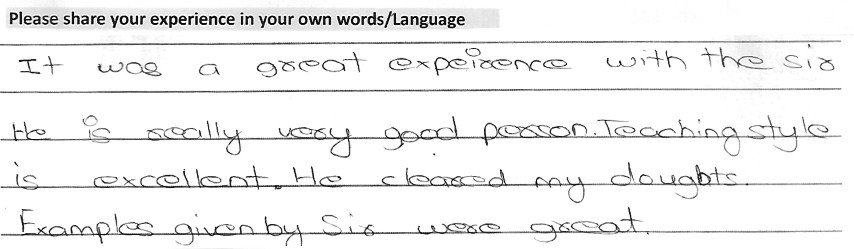 Please share your experience in your own words/Language
It was a great expeirence with the sir
He is really very good person. Teaching style
is excellent. He cleared my doughts.
Examples given by Sir were great.